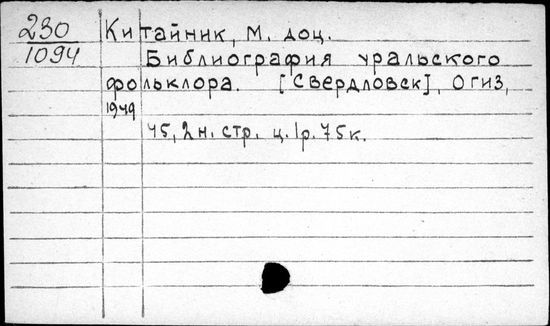 230
1094
Китайник, М. доц.
Библиография уральского
фольклора. [Свердловск], Огиз,
1949
45, 2 н. стр. ц. 1р. 75к.